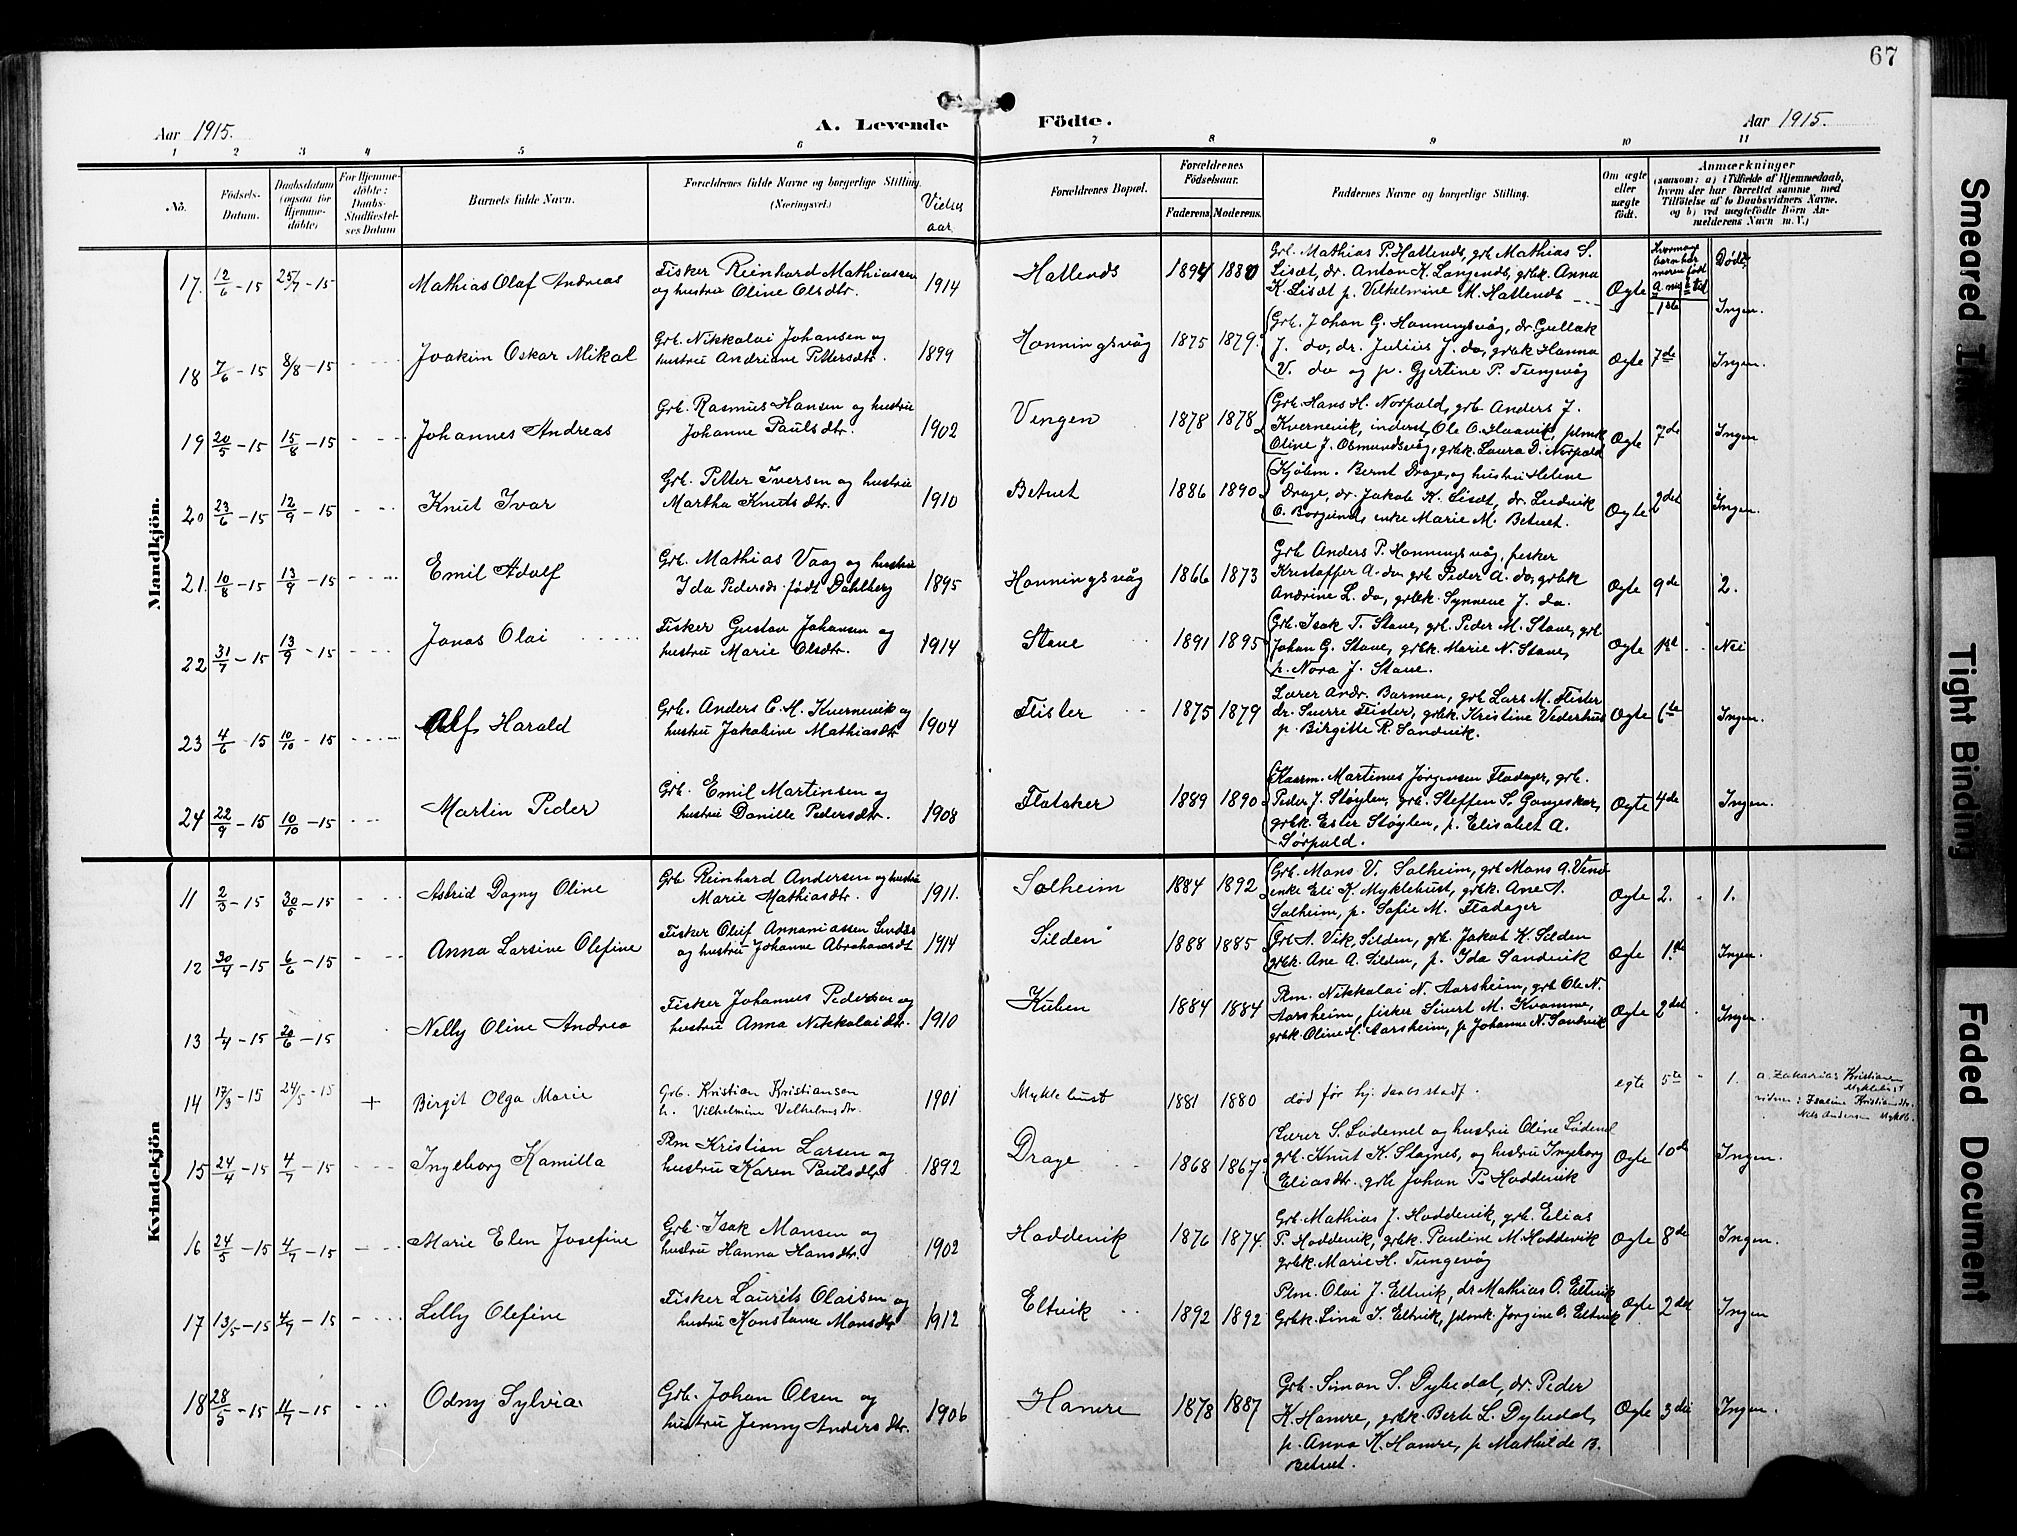 67
Aar 1915.
A. Levende Födte.
Aar 1915.
1 2 3 4 5 6 7 8 9 10 11
No.
Födsels-
Datum.
Daabsdatum
(ogsaa for
Hjemme-
döbte)
For Hjemme-
döbte:
Daabs-
Stadfæstel-
ses Datum
Barnets fulde Navn.
Forældrenes fulde Navne og borgerlige Stilling.
(Næringsvei.)
Vielses
aar.
Forældrenes Bopæl.
Forældrenes
Födselsaar.
Faderens Moderens.
Faddernes Navne og borgerlige Stilling.
Om ægte
eller
uægte
födt.
Anmærkninger
(saasom: a) i Tilfælde af Hjemmedaab,
hvem der har forrettet samme, med
Tilföielse af to Daabsvidners Navne,
og b) ved uægtefödte Börn An-
melderens Navn m. V.)
Mandkjön.
17. 12/6 - 15 25/7 - 15 Mathias Olaf Andreas
Fisker Reinhard Mathiassen
og hustru Oline Olsdtr. 1914
Hatlends 1894 1880
Grb. Mathias P. Hatlends, grb Mathias S.
Lisæt, dr. Anton K. Langends, grbk. Anna
K. Lisæt p. Vilhelmine M. Hatlends
Ægte
1ste
Døde
Ingen.
18 7/6 - 15 8/8 - 15 Joakim Oskar Mikal
Grb. Nikkolai Johansen og
hustru Andriane Pettersdtr. 1899
Honningsvåg 1875 1879.
Grb. Johan G. Honningsvåg, dr. Gullak
J. do, dr. Julius J. do, grbk Hanna
V. do og p. Gjertine P. Tungevåg
Ægte 7de Ingen.
19 20/5 - 15 15/8 - 15 Johannes Andreas
Grb. Rasmus Hansen og hustru
Johanne Paulsdtr. 1902
Vengen 1878 1878
Grb. Hans H. Norpold, grb Anders J.
Kvernevik, inderst Ole O. Haavik, plmk
Oline J. Osmundsvåg, grbk. Laura D. Norpold
Ægte 7de Ingen
20 23/6 - 15 12/9 - 15 Knut Ivar
Grb. Petter Iversen og hustru
Martha Knutsdtr. 1910
Betuet 1886 1890
Kjøbm. Bernt Drage, og hustru Helene
Drage, dr. Jakob K. Lisæt, dr. Ludvik
O. Borgund, enke Marie M. Betuet.
Ægte 2det Ingen.
21. 10/8 - 15 13/9 - 15 Emil Adolf
Grb. Mathias Vaag og hustru
Ida Pedersdr. født Dahlberg 1895
Honningsvåg 1866 1873
Grb Anders P. Honningsvåg, fisker
Kristoffer A. do, grb Peder A. do, grbk
Andrine L. do, grbk. Synneve J. do.
Ægte 9de 2.
22 31/7 - 15 13/9 - 15 Jonas Olai
Fisker Gustav Johansen og
hustru Marie Olsdtr. 1914
Stave 1891 1895
Grb. Isak T. Stave, grb. Peder M. Stave, grb
Johan G. Stave, grbk. Marie N. Stave,
p. Nora J. Stave.
Ægte 1ste Nei
23 4/6 - 15 10/10 - 15 Alf Harald
Grb. Anders C. M. Kvernevik og
hustru Jakobine Mathiasdtr. 1904
Flister 1875 1879
Lærer Andr. Barmen, grb Lars M. Flister
dr. Sverre Flister, grbk. Kristine Vederhus
p. Birgitte R. Sandvik.
Ægte 6te Ingen.
24 22/9 - 15 10/10 - 15 Martin Peder
Grb. Emil Martinsen og
hustru Danille Pedersdtr. 1908
Flataker 1889 1890
Kaarm. Martinus Jørgensen Fladager, grb.
Peder J. Støylen, grb. Steffen S. Gangeskar,
grbk. Ester Støylen, p. Elisabet A.
Sørpold.
Ægte 4de Ingen.
Kvindekjön
11 2/3 - 15 30/5 - 15 Astrid Dagny Oline
Grb Reinhard Andersen og hustru
Marie Mathiasdtr. 1911.
Solheim 1884 1892
Grb. Mons V. Solheim, grb Mons A.
enke Eli K. Myklebust, grbk. Ane A.
Solheim, p. Sofie M. Fladager
Ægte 2. 1.
12 30/4 - 15 6/6 - 15 Anna Larsine Olefine
Fisker Oluf Annaniassen
og hustru Johanne Abrahamsdt 1914
Silden 1888 1885
Grb A. Vik, Silden, grb. Jakob K. Silden
grbk. Ane A. Silden, p. Ida Sandvik
Ægte 1ste Ingen.
13 1/4 - 15 20/6 - 15 Nelly Oline Andrea
Fisker Johannes Pedersen og
hustru Anna Nikkolaidtr. 1910
Kuben 1884 1884
Plm. Nikkolai N. Aarsheim, grb Ole N.
Aarsheim, fisker Sivert M. Kvamme,
grbk. Oline H. Aarsheim, p Johanne N. Sandvik
Ægte 2det Ingen.
14 17/3 - 15 24/5 - 15 + Birgit Olga Marie
Grb. Kristian Kristiansen
h. Vilhelmine Velhelmsdtr. 1901
Myklebust 1881 1880
død før hj. daabs stadf.
egte 5te 1.
a. Zakarias Kristiansen
Myklebust
vidner: Isaline Kristiansdtr.
Nils Andersen Mykleb.
15 24/4 - 15 4/7 - 15 Ingeborg Kamilla
Plm Kristian Larsen og
hustru Karen Paulsdtr 1892
Drage 1868 1867
Lærer S. Lødemel og hustru Oline Lødemel
grb. Knut K. Stagnes, og hustru Ingeborg
Eliasdtr. grb Johan P. Hoddevik
Ægte 10de Ingen.
16 24/5 - 15 4/7 - 15 Marie Elen Josefine
Grb. Isak Monsen og
hustru Hanna Hansdtr. 1902
Hoddevik 1876 1874.
Grb. Mathias J. Hoddevik, grb. Elias
P. Hoddevik, grbk. Pauline M. Hoddevik
grbk. Marie H. Tungevåg
Ægte 8de Ingen.
17 13/5 - 15 4/7 - 15 Lilly Olefine
Fisker Laurits Olaisen og
hustru Konstanse Monsdtr 1912
Eltvik 1892 1892
Plm. Olai J. Eltvik, dr Mathias O. Eltvik
Grbk. Lina I. Eltvik, plmk. Jørgine O. Eltvik
Ægte 2det Ingen
18 28/5 - 15 11/7 - 15 Odny Sylvia
Grb. Johan Olsen og
hustru Jenny Andersdtr. 1906
Hamre 1878 1887
Grb. Simon S. Dybedal, dr. Peder
K. Hamre, grbk. Berte L. Dybedal,
p. Anna K. Hamre, p Mathilde B.
Betuet.
Ægte 3die Ingen.
Smeared Ink
Tight Binding
Faded Document